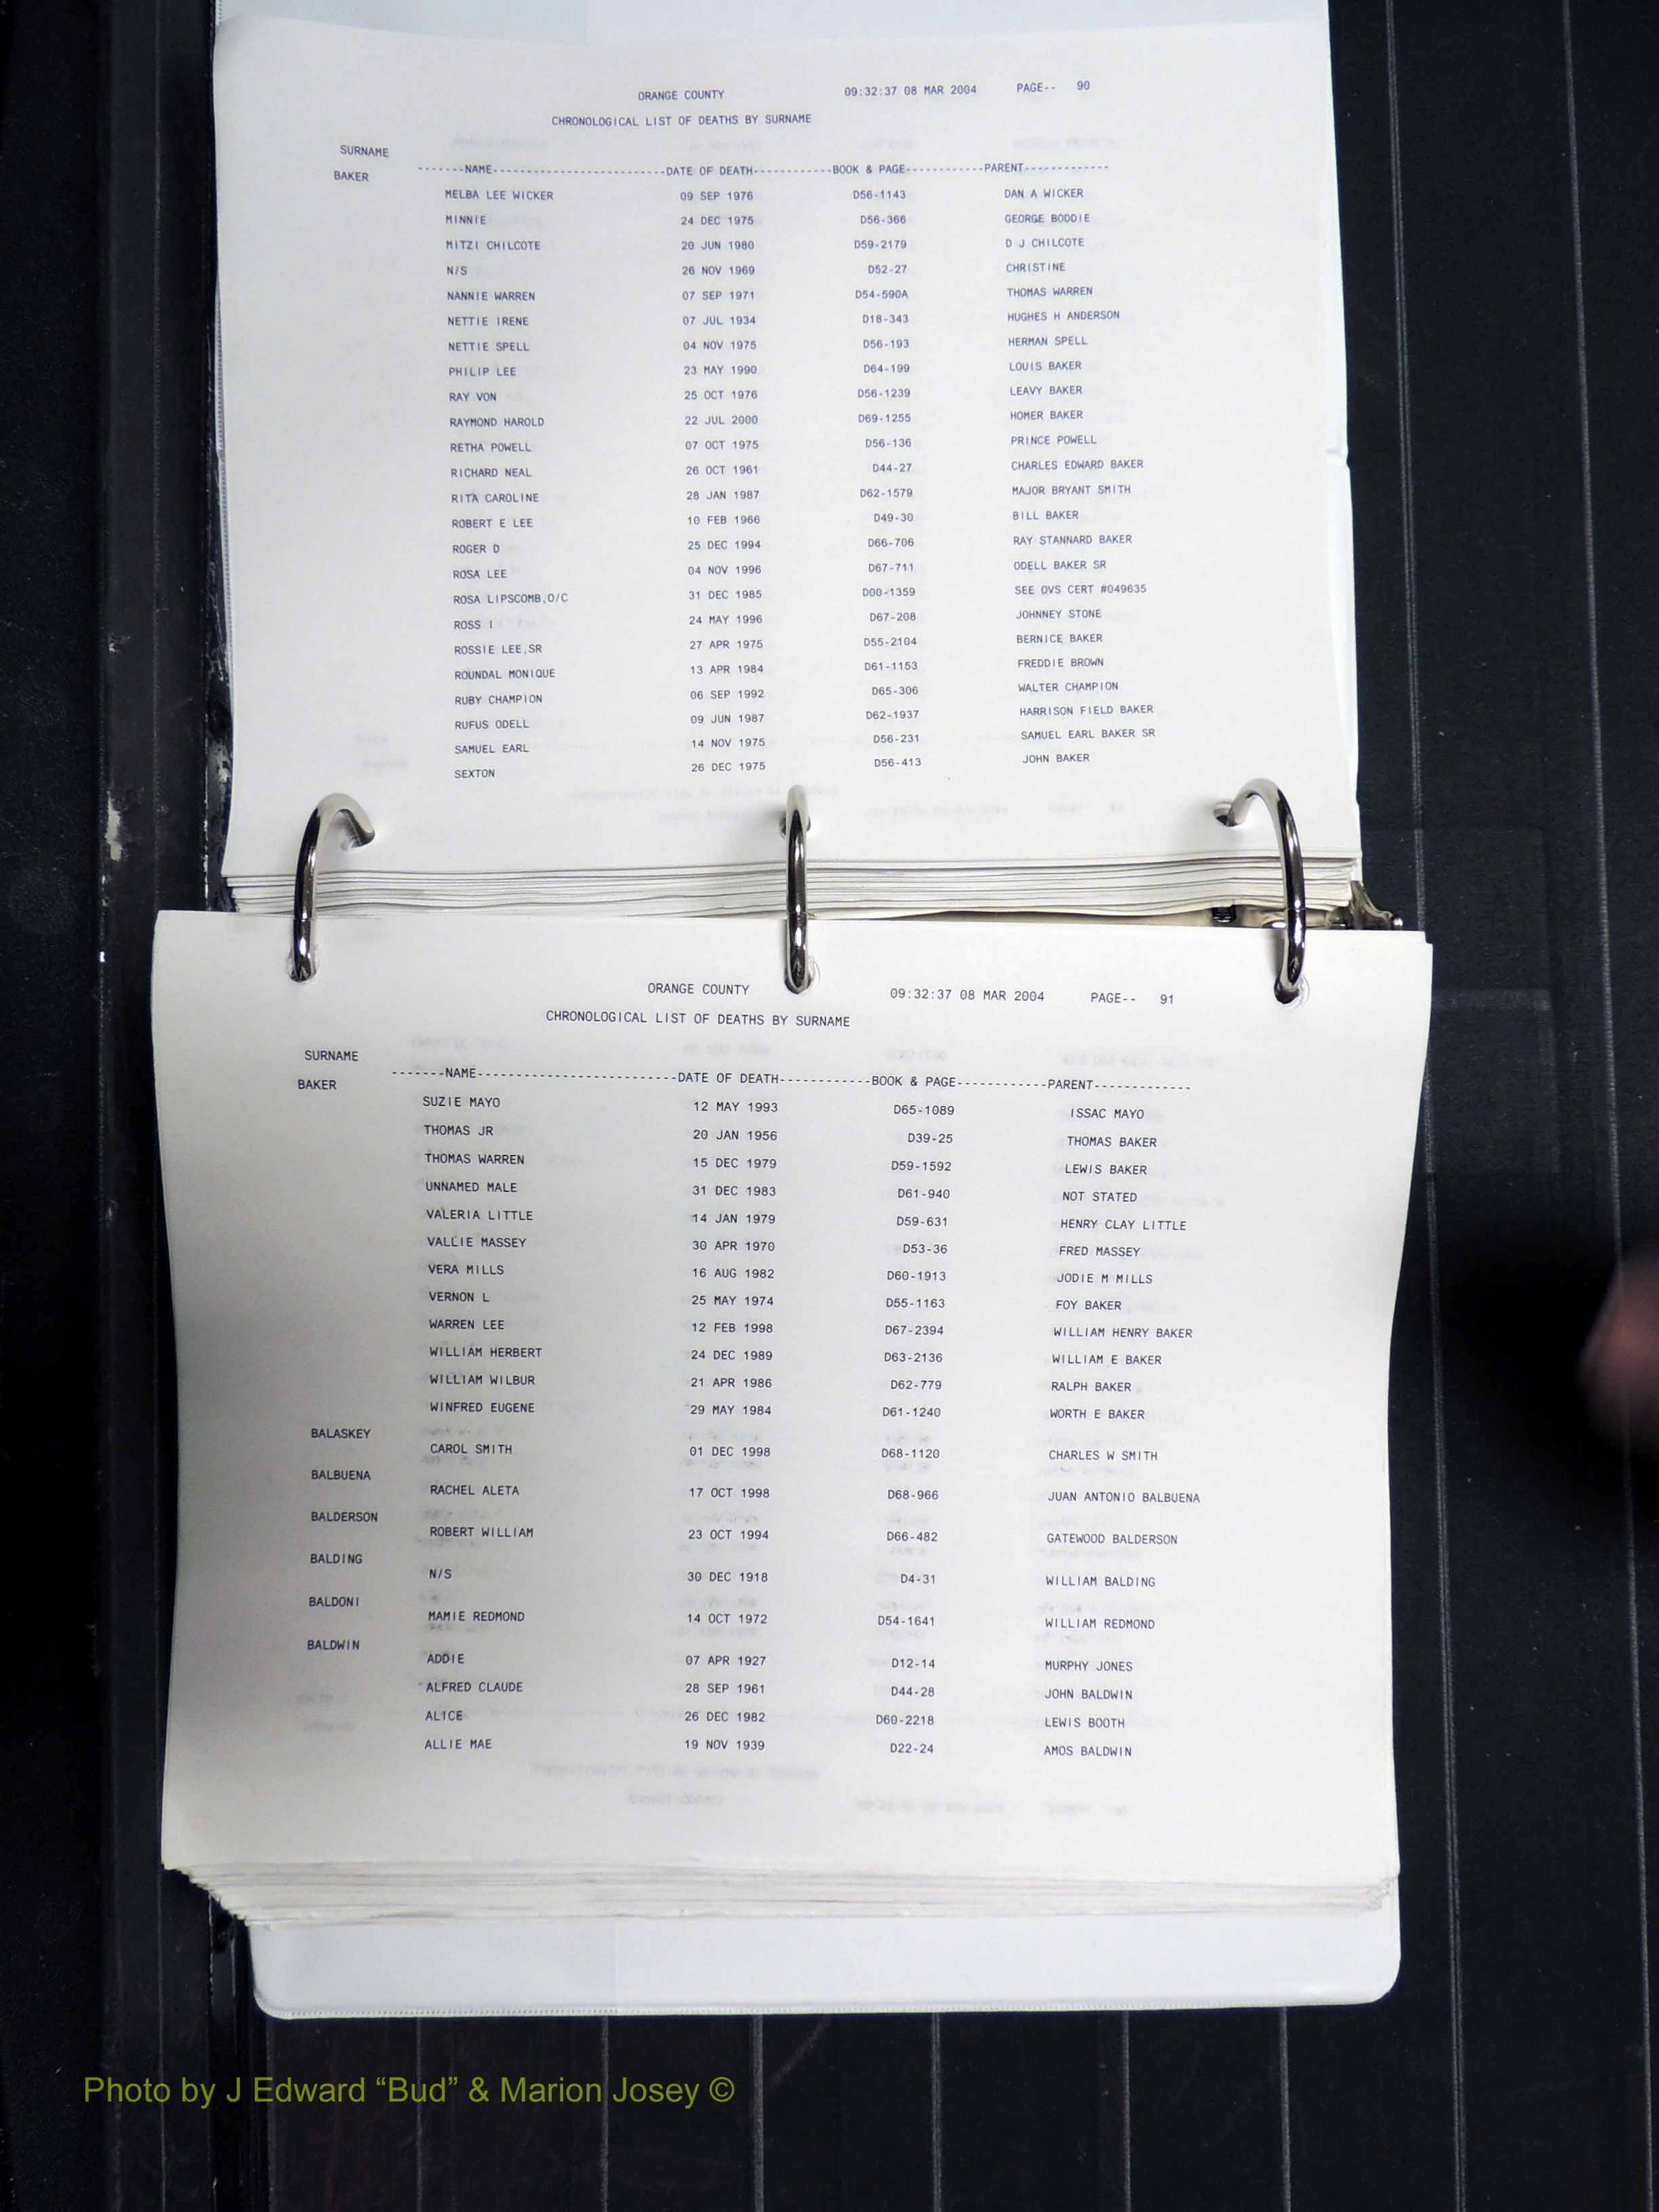 ORANGE COUNTY 09:32:37 08 MAR 2004 PAGE-- 90
CHRONOLOGICAL LIST OF DEATHS BY SURNAME
SURNAME
-------NAME-------------------------DATE OF DEATH-----------BOOK & PAGE-----------PARENT------------
BAKER
MELBA LEE WICKER 09 SEP 1976 D56-1143 DAN A WICKER
MINNIE 24 DEC 1975 D56-366 GEORGE BODDIE
MITZI CHILCOTE 20 JUN 1980 D59-2179 D J CHILCOTE
N/S 26 NOV 1969 D52-27 CHRISTINE
NANNIE WARREN 07 SEP 1971 D54-590A THOMAS WARREN
NETTIE IRENE 07 JUL 1934 D18-343 HUGHES H ANDERSON
NETTIE SPELL 04 NOV 1975 D56-193 HERMAN SPELL
PHILIP LEE 23 MAY 1990 D64-199 LOUIS BAKER
RAY VON 25 OCT 1976 D56-1239 LEAVY BAKER
RAYMOND HAROLD 22 JUL 2000 D69-1255 HOMER BAKER
RETHA POWELL 07 OCT 1975 D56-136 PRINCE POWELL
RICHARD NEAL 26 OCT 1961 D44-27 CHARLES EDWARD BAKER
RITA CAROLINE 28 JAN 1987 D62-1579 MAJOR BRYANT SMITH
ROBERT E LEE 10 FEB 1966 D49-30 BILL BAKER
ROGER D 25 DEC 1994 D66-706 RAY STANNARD BAKER
ROSA LEE 04 NOV 1996 D67-711 ODELL BAKER SR
ROSA LIPSCOMB,O/C 31 DEC 1985 D00-1359 SEE OVS CERT #049635
ROSS I 24 MAY 1996 D67-208 JOHNNEY STONE
ROSSIE LEE,SR 27 APR 1975 D55-2104 BERNICE BAKER
ROUNDAL MONIQUE 13 APR 1984 D61-1153 FREDDIE BROWN
RUBY CHAMPION 06 SEP 1992 D65-306 WALTER CHAMPION
RUFUS ODELL 09 JUN 1987 D62-1937 HARRISON FIELD BAKER
SAMUEL EARL 14 NOV 1975 D56-231 SAMUEL EARL BAKER SR
SEXTON 26 DEC 1975 D56-413 JOHN BAKER
ORANGE COUNTY 09:32:37 08 MAR 2004 PAGE-- 91
CHRONOLOGICAL LIST OF DEATHS BY SURNAME
SURNAME
-------NAME-------------------------DATE OF DEATH-----------BOOK & PAGE-----------PARENT------------
BAKER
SUZIE MAYO 12 MAY 1993 D65-1089 ISSAC MAYO
THOMAS JR 20 JAN 1956 D39-25 THOMAS BAKER
THOMAS WARREN 15 DEC 1979 D59-1592 LEWIS BAKER
UNNAMED MALE 31 DEC 1983 D61-940 NOT STATED
VALERIA LITTLE 14 JAN 1979 D59-631 HENRY CLAY LITTLE
VALLIE MASSEY 30 APR 1970 D53-36 FRED MASSEY
VERA MILLS 16 AUG 1982 D60-1913 JODIE M MILLS
VERNON L 25 MAY 1974 D55-1163 FOY BAKER
WARREN LEE 12 FEB 1998 D67-2394 WILLIAM HENRY BAKER
WILLIAM HERBERT 24 DEC 1989 D63-2136 WILLIAM E BAKER
WILLIAM WILBUR 21 APR 1986 D62-779 RALPH BAKER
WINFRED EUGENE 29 MAY 1984 D61-1240 WORTH E BAKER
BALASKEY
CAROL SMITH 01 DEC 1998 D68-1120 CHARLES W SMITH
BALBUENA
RACHEL ALETA 17 OCT 1998 D68-966 JUAN ANTONIO BALBUENA
BALDERSON
ROBERT WILLIAM 23 OCT 1994 D66-482 GATEWOOD BALDERSON
BALDING
N/S 30 DEC 1918 D4-31 WILLIAM BALDING
BALDONI
MAMIE REDMOND 14 OCT 1972 D54-1641 WILLIAM REDMOND
BALDWIN
ADDIE 07 APR 1927 D12-14 MURPHY JONES
ALFRED CLAUDE 28 SEP 1961 D44-28 JOHN BALDWIN
ALICE 26 DEC 1982 D60-2218 LEWIS BOOTH
ALLIE MAE 19 NOV 1939 D22-24 AMOS BALDWIN
Photo by J Edward “Bud” & Marion Josey ©